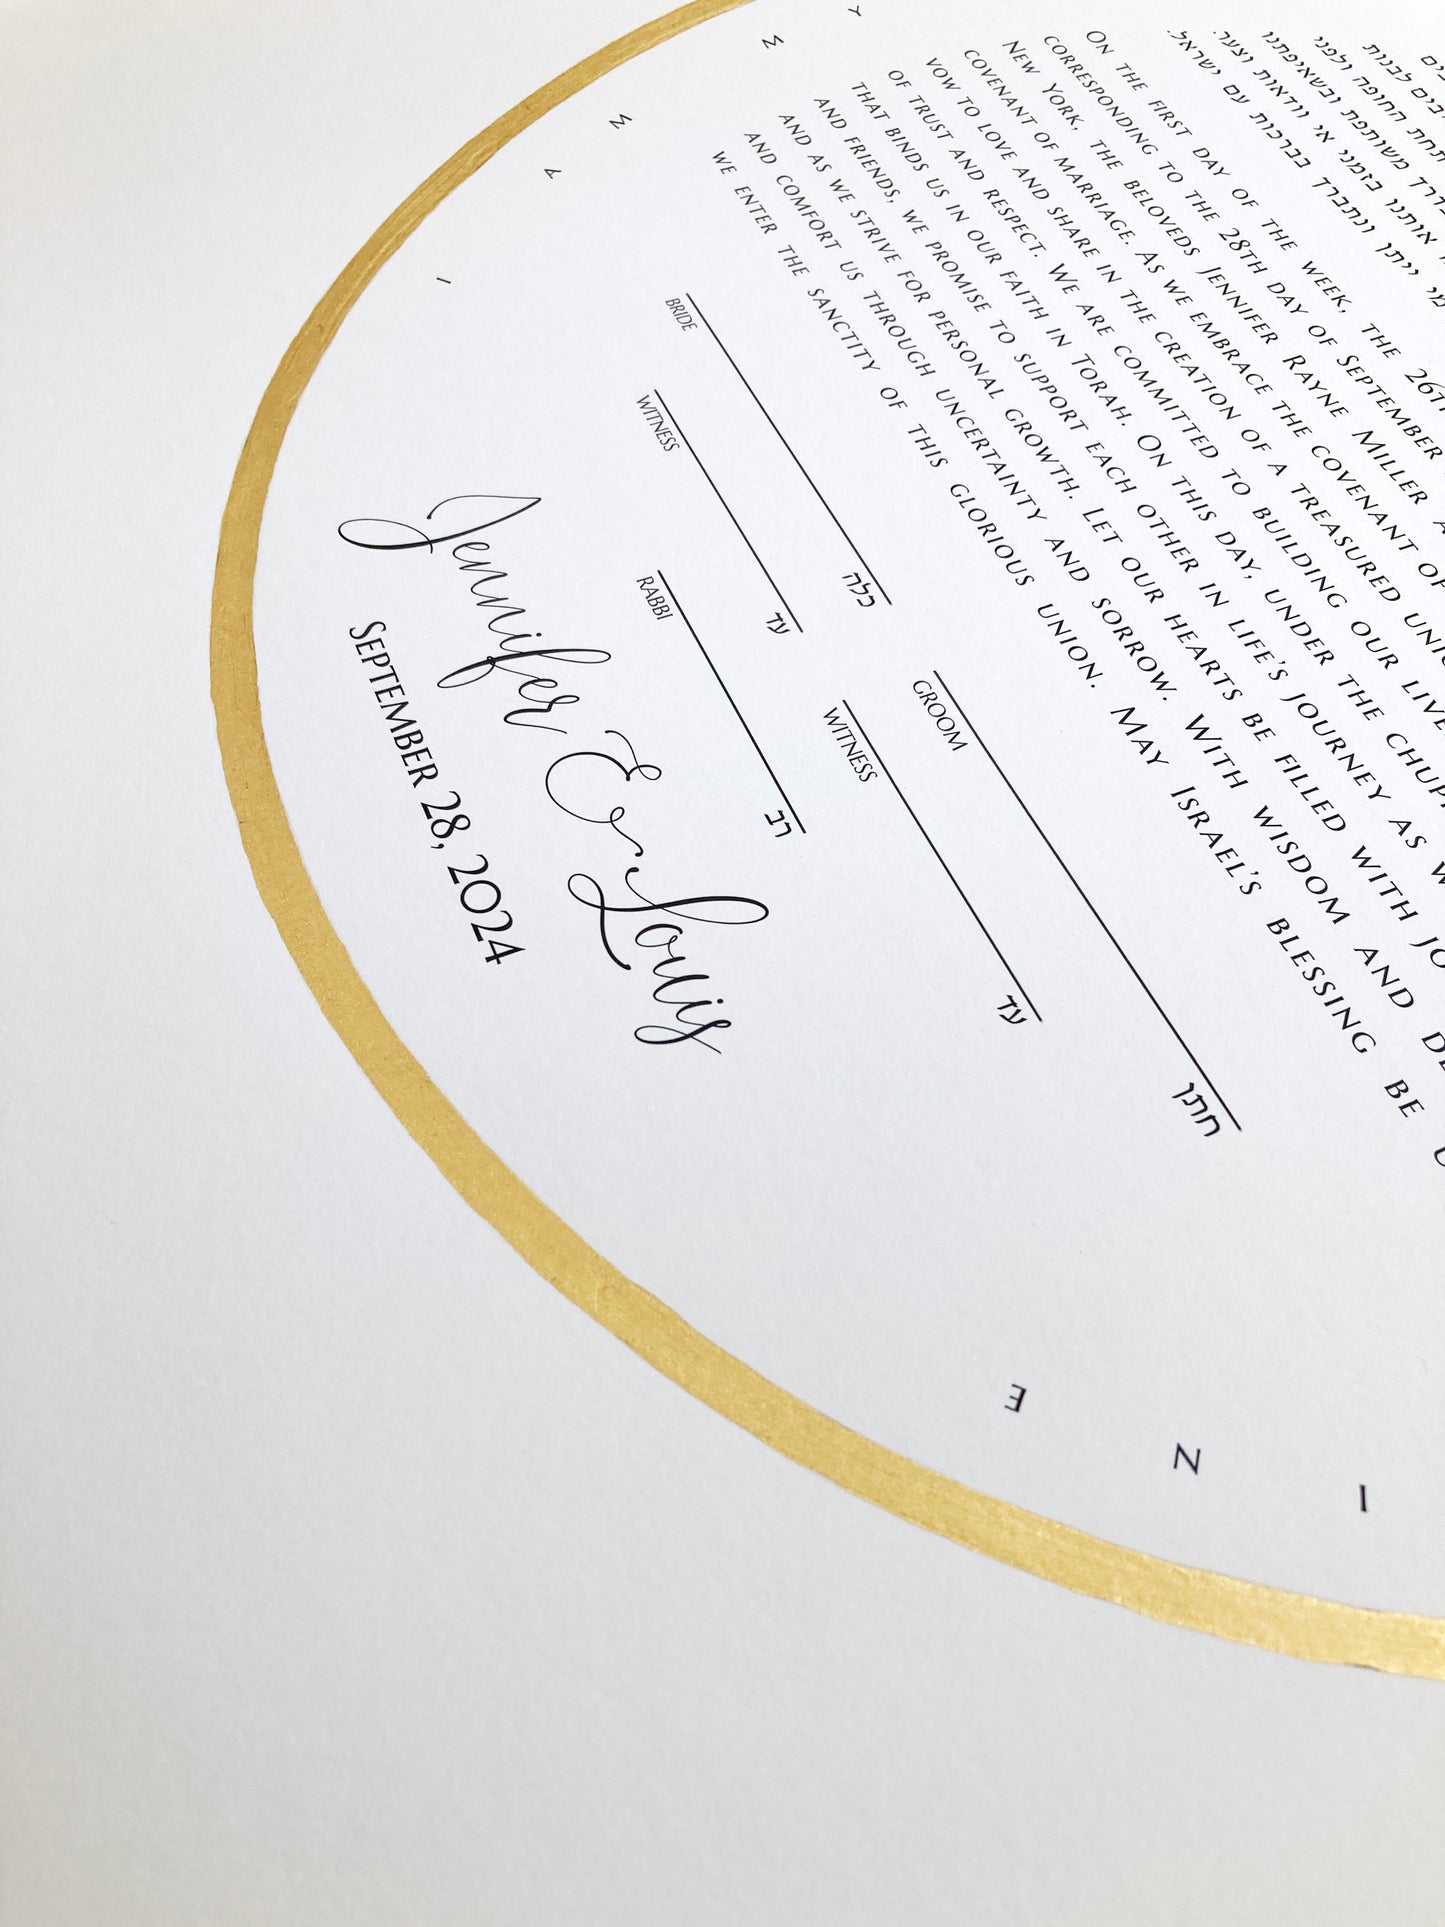 לבנות
תחת החופה ולפני
משותפת ובשאיפתנו
אותנו בזמני אי וודאות וצער.
מי ייתן ונתברך בברכות עם ישראל.
On the first day of the week, the 26t
corresponding to the 28th day of September
New York, the beloveds Jennifer Rayne Miller
covenant of marriage. As we embrace the covenant of
vow to love and share in the creation of a treasured
of trust and respect. We are committed to building our
that binds us in our faith in Torah. On this day, under the
and friends, we promise to support each other in life's journey as
and as we strive for personal growth. Let our hearts be filled with
and comfort us through uncertainty and sorrow. With wisdom and
we enter the sanctity of this glorious union. May Israel's blessing be
BRIDE כלה
GROOM חתן
WITNESS עד
WITNESS עד
RABBI רב
Jennifer & Louis
September 28, 2024
I A M M Y
I N E